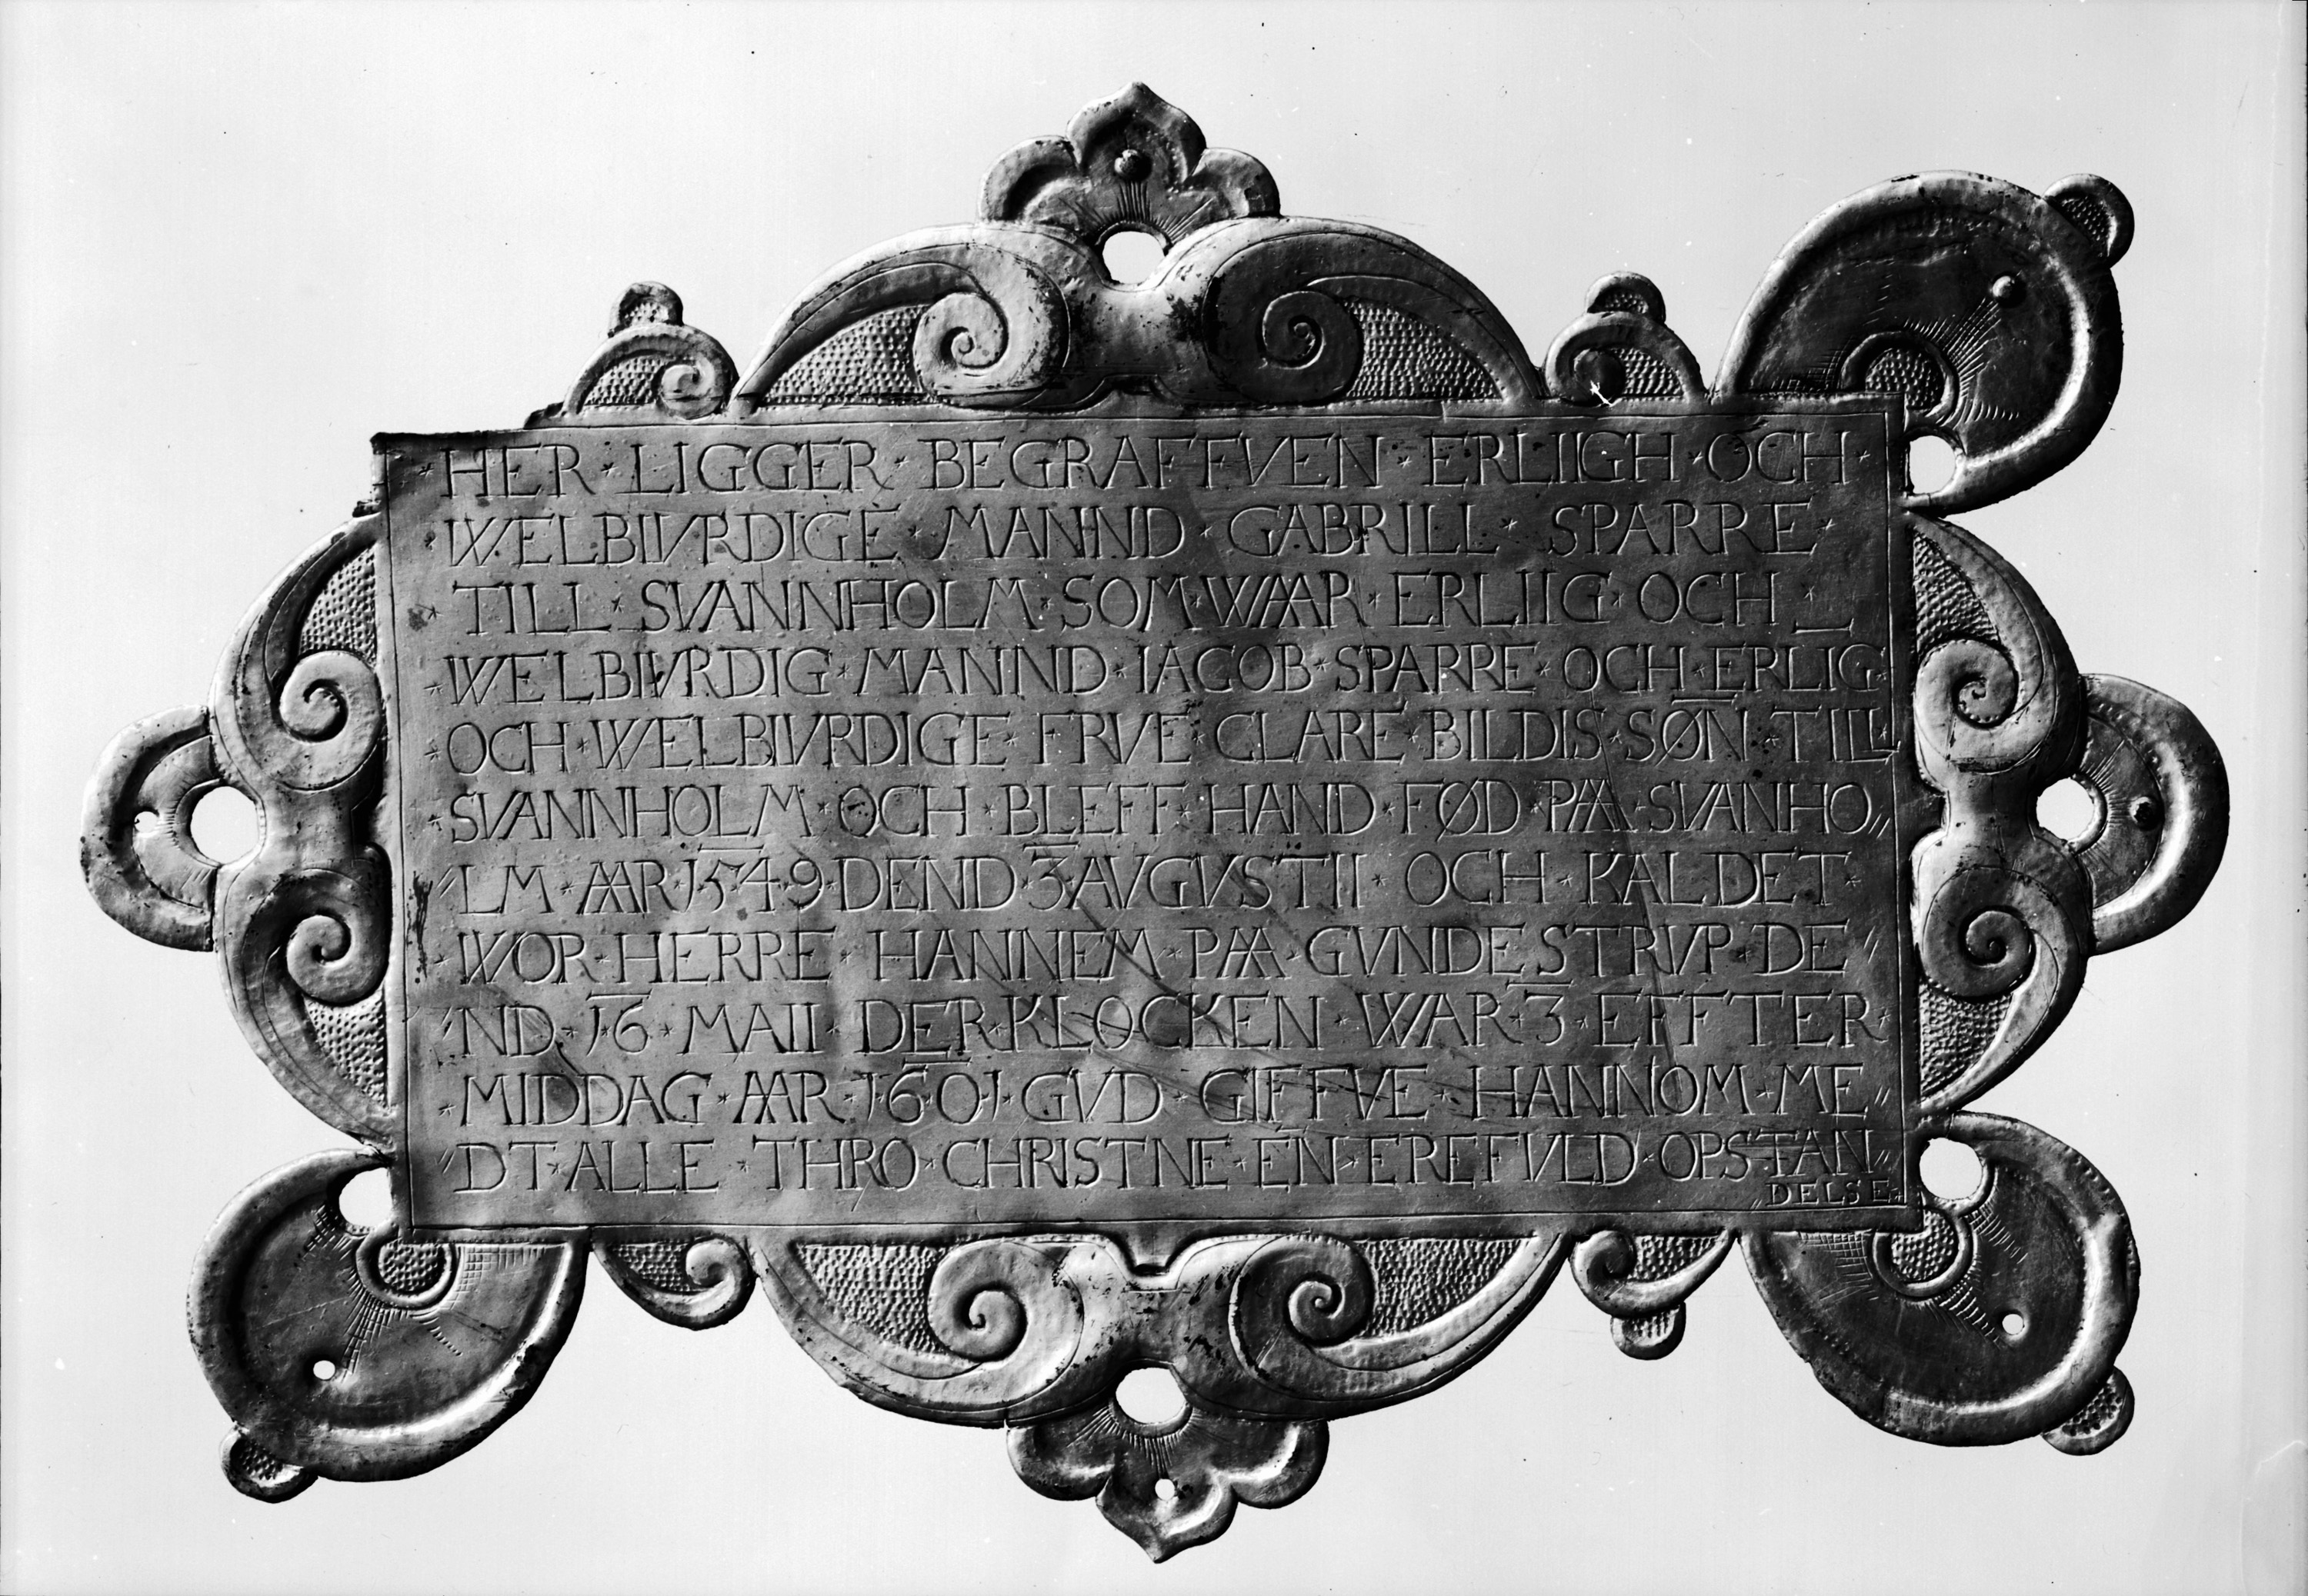 HER * LIGGER * BEGRAFFVEN * ERLIIGH * OCH *
* WELBIVRDIGE * MANND * GABRILL * SPARRE *
* TILL * SVANNHOLM * SOM * WAAR * ERLIIG * OCH _
* WELBIVRDIG * MANND * IACOB * SPARRE * OCH * ERLIG *
* OCH * WELBIVRDIGE * FRVE * CLARE * BILDIS * SØN * TILL
* SVANNHOLM * OCH * BLEFF * HAND * FØD * PAA * SVANHO //
// LM * AAR * 1549 * DEND * 3 * AVGVSTII * OCH * KALDET *
* WOR * HERRE * HANNEM * PAA * GVNDESTRVP * DE //
// ND * 16 * MAII * DER * KLOCKEN * WAR * 3 * EFFTER *
* MIDDAG * AAR * 1601 * GVD * GIFFVE * HANNOM * ME //
// DT * ALLE * THRO * CHRISTNE * EN * EREFVLD * OPSTAN //
// DELSE *